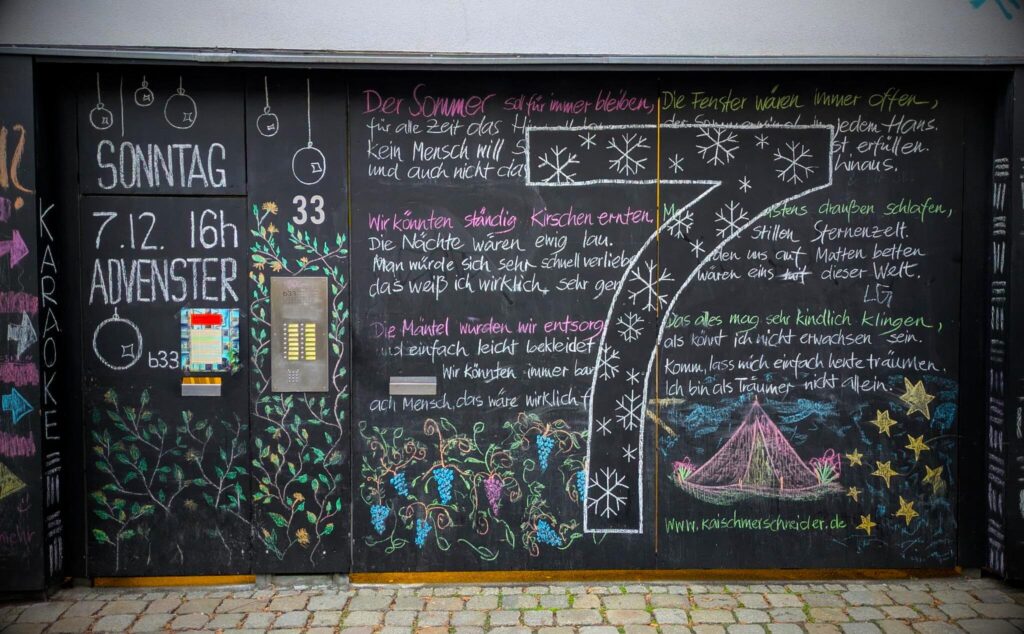 SONNTAG
7.12. 16h
ADVENSTER
b33
33
b33
KARAOKE
Der Sommer soll für immer bleiben,
für alle Zeit das
Kein Mensch will
und auch nicht
Wir könnten ständig Kirschen ernten.
Die Nächte wären ewig lau.
Man würde sich sehr schnell
das weiß ich wirklich, sehr
Die Mäntel wurden wir
und einfach leicht bekleidet
Wir könnten immer
ach Mensch, das wäre wirklich
7
Die Fenster wären immer offen,
in jedem Haus.
erfüllen.
hinaus.
draußen schlafen,
stillen Sternenzelt.
uns auf Matten betten
wären eins mit dieser Welt.
LG
Das alles mag sehr kindlich klingen,
als könnt ich nicht erwachsen sein.
Komm, lass mich einfach heute träumen.
Ich bin als Träumer nicht allein.
www.kaischmerschneider.de
mehr